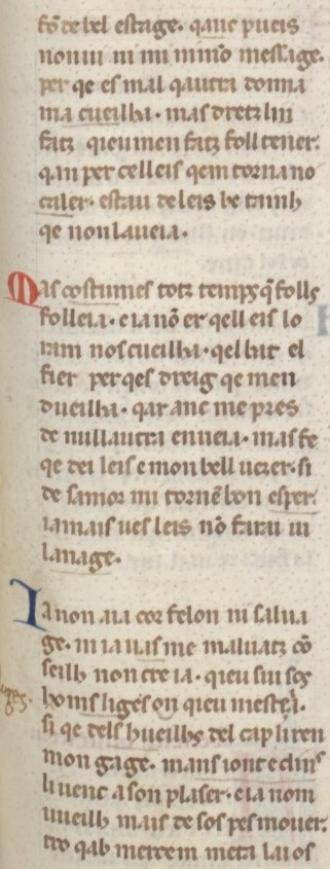 fo de bel estage. qanc pueis
non ui ni mi mino mesage.
per qe es mal qautra donna
ma cueilha. mas dretz lin
fatz qieu men fatz foll tener.
qan per celleis qem torna no
caler. estau de leis be tanh
qe non laveia.
Mas costumes totz temps q̃ folls
folleia. e ia nō er qell eis lo
ram nos cueilha. qel bat el
fier per qes dreig qe men
dueilha. qar anc me pres
de nullautra enueia. mas fe
qe dei leis e mon bell uezer. si
de samor mi tornē bon esper.
iamais ues leis nō farai ui
lanage.
Ia non aia cor felon ni salua
ge. ni ia uas me maluatz cō
seilh non creia. qieu sui sos
homs liges on qieu mesteia.
si qe dels hueilhs del cap li ren
mon gage. mans iontz e clins
li uenc a son plaser. e ia nom
uueilh mais de sos pes mouer.
tro qab merce m meta lai os